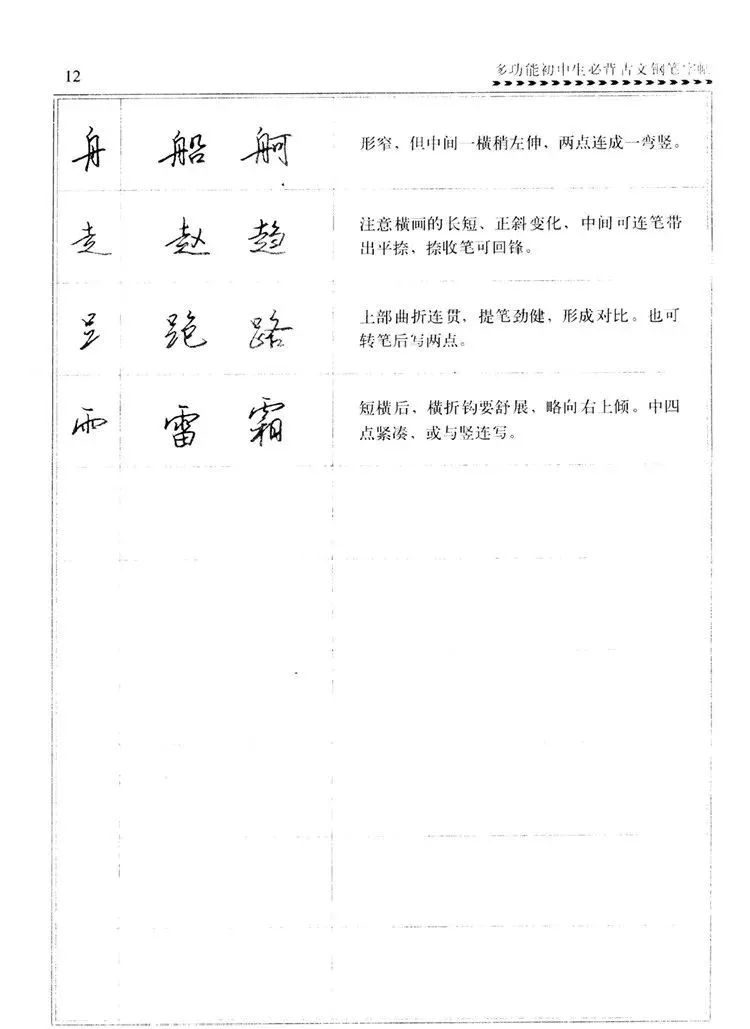 12
多功能初中生必背古文钢笔字帖
舟 船 舸 形窄，但中间一横稍左伸，两点连成一弯竖。
走 赵 趋 注意横画的长短、正斜变化，中间可连笔带
出平捺，捺收笔可回锋。
𧾷 跑 路 上部曲折连贯，提笔劲健，形成对比。也可
转笔后写两点。
雨 雷 霜 短横后，横折钩要舒展，略向右上倾。中四
点紧凑，或与竖连写。